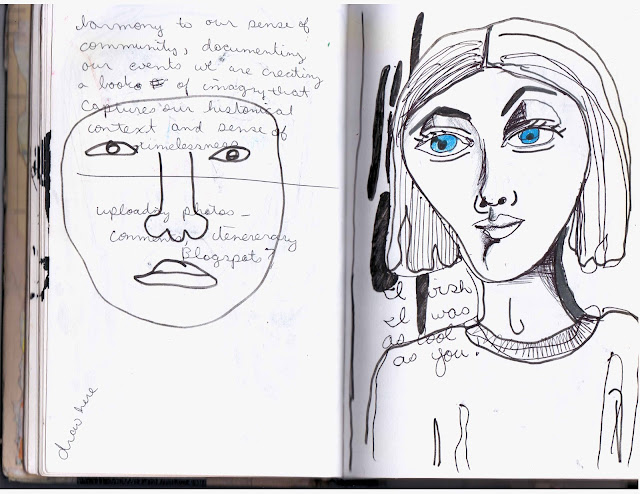 harmony to our sense of
community, documenting
our events we are creating
a book of imagry that
captures our historical
context and sense of
timelessness
uploading photos -
comments, itenerary
Blogspots?
draw here
I wish
I was
as cool
as you.